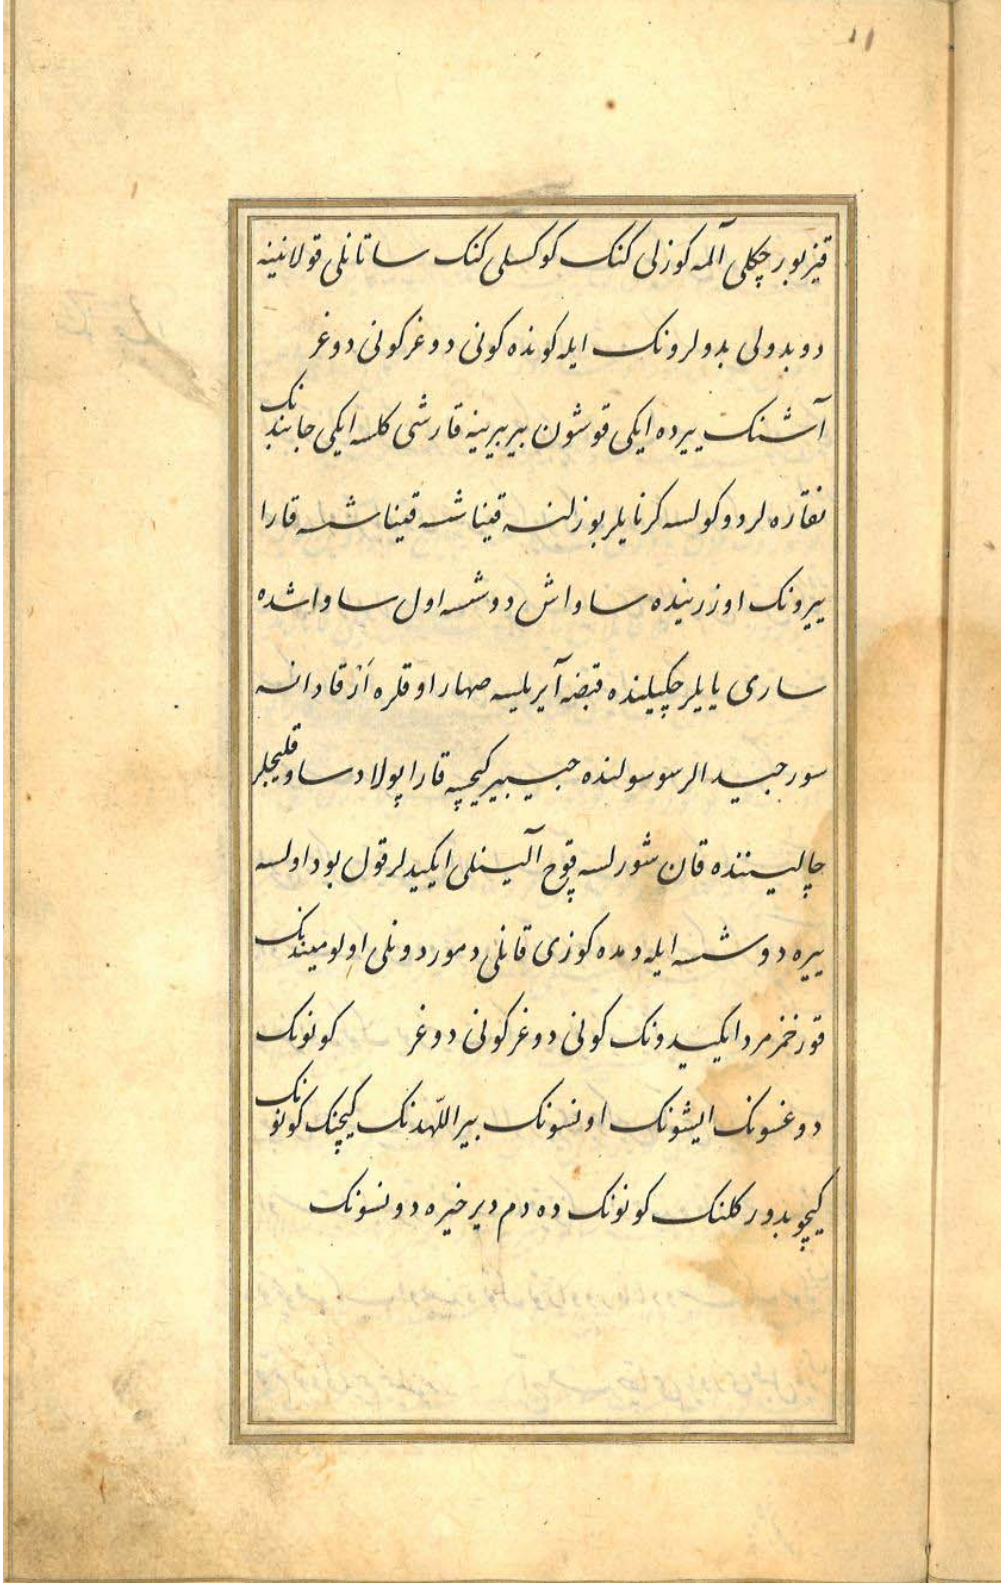 ۱۱
قیز بوبرچکلی آلمه کوزلی کنک کوکسلی کنک ساتانلی قولانینه
دوبدولی بدولرونک ایله کونده کونی دوغر کونی دوغر
آشنک ییرده ایکی قوشون بیر بیرینه قارشی کلسه ایکی جانبدنک
نقاره لر دوکولسه کرنایلر بوزلنسه قیناشسه قیناشسه قارا
ییرونک اوزرینده ساواش دوشسه اول ساواشده
ساری یایلر چکیلینده قبضه آیریلسه صهار اوقلره آز قادانسه
سورجیدالر سوسولنده جیبیر کیچیسه قارا پولاد ساو قلیچلر
چالیسننده قان شورلسه قوچ آلینلی ایکیدلر قول بود اولسه
ییره دوشسه ایله دمده کوزی قانلی دمور دونلی اولومیندنک
قورخمز مرد ایکیدونک کونی دوغر کونی دوغر کونونک
دوغسونک ایشونک اونسونک بیر اللّهدنک کیچنک کونونک
کیچوبدور کلنک کونونک ده دم دیر خیره دونسونک